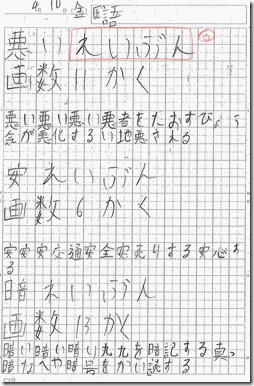 4月10日 金 国語
悪い れいぶん
画数 11 かく
悪い悪い悪い悪者をたおすびょう
金が悪化するい地悪される
安 れいぶん
画数 6 かく
安安安交通安全安売りする安心す
る
暗 れいぶん
画数 13 かく
暗い暗い暗い九九を暗記する真っ
暗なへや暗号をかい読する